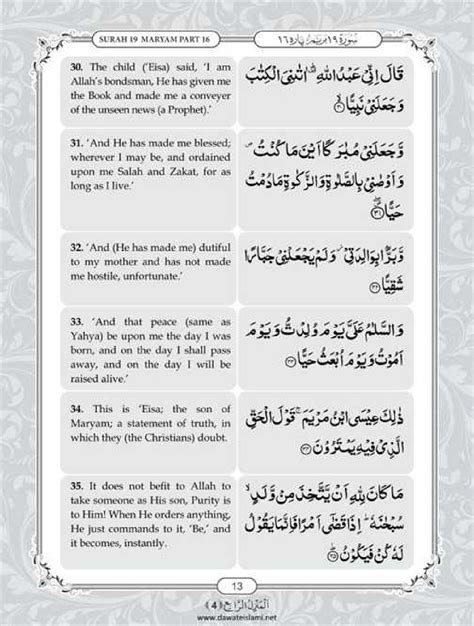 SURAH 19 MARYAM PART 16
سُوْرَةُ مَرْيَم ١٩ پاره ١٦
30. The child ('Eisa) said, 'I am
Allah's bondsman, He has given me
the Book and made me a conveyer
of the unseen news (a Prophet).'
قَالَ اِنِّیْ عَبْدُ اللّٰهِ ۫ؕ اٰتٰىنِیَ الْكِتٰبَ
وَ جَعَلَنِیْ نَبِیًّا ۙ﴿۳۰﴾
31. 'And He has made me blessed;
wherever I may be, and ordained
upon me Salah and Zakat, for as
long as I live.'
وَّ جَعَلَنِیْ مُبٰرَكًا اَیْنَ مَا كُنْتُ ۪
وَ اَوْصٰنِیْ بِالصَّلٰوةِ وَ الزَّكٰوةِ مَا دُمْتُ
حَیًّا ﴿۳۱﴾
32. 'And (He has made me) dutiful
to my mother and has not made
me hostile, unfortunate.'
وَّ بَرًّۢا بِوَالِدَتِیْ ؗ وَ لَمْ یَجْعَلْنِیْ جَبَّارًا
شَقِیًّا ﴿۳۲﴾
33. 'And that peace (same as
Yahya) be upon me the day I was
born, and on the day I shall pass
away, and on the day I will be
raised alive.'
وَ السَّلٰمُ عَلَیَّ یَوْمَ وُلِدْتُّ وَ یَوْمَ
اَمُوْتُ وَ یَوْمَ اُبْعَثُ حَیًّا ﴿۳۳﴾
34. This is 'Eisa; the son of
Maryam; a statement of truth, in
which they (the Christians) doubt.
ذٰلِكَ عِیْسَی ابْنُ مَرْیَمَ ۚ قَوْلَ الْحَقِّ
الَّذِیْ فِیْهِ یَمْتَرُوْنَ ﴿۳۴﴾
35. It does not befit to Allah to
take someone as His son, Purity is
to Him! When He orders anything,
He just commands to it, 'Be,' and
it becomes, instantly.
مَا كَانَ لِلّٰهِ اَنْ یَّتَّخِذَ مِنْ وَّلَدٍ ۙ
سُبْحٰنَهٗ ؕ اِذَا قَضٰۤی اَمْرًا فَاِنَّمَا یَقُوْلُ
لَهٗ كُنْ فَیَكُوْنُ ﴿ؕ۳۵﴾
13
اَلْمَنْزِلُ الرَّابِع ﴿4﴾
www.dawateislami.net